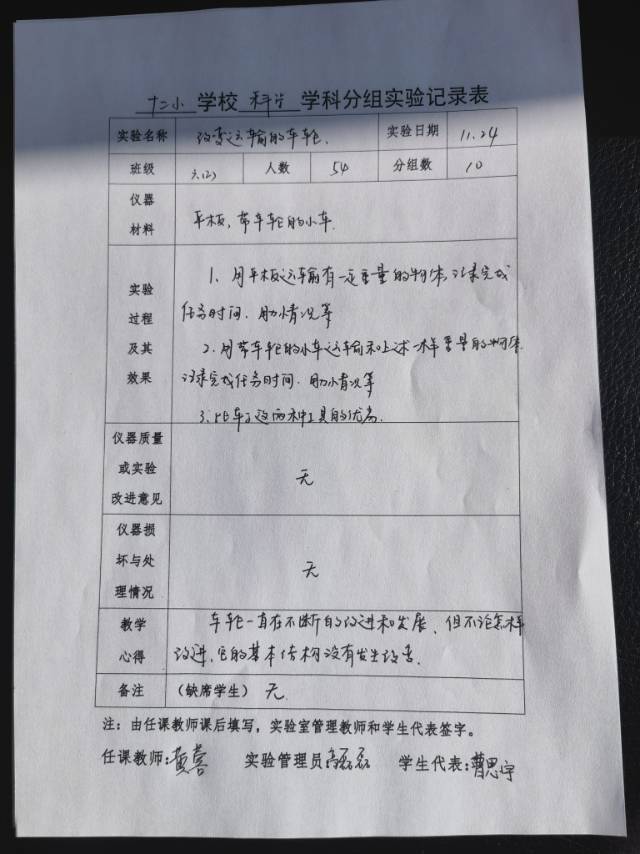 十二小 学校 科学 学科分组实验记录表
实验名称 改变运输的车轮. 实验日期 11.24
班级 六(2) 人数 54 分组数 10
仪器材料 平板,带车轮的小车.
实验过程及其效果
1、用平板运输有一定重量的物体,记录完成
任务时间、用力情况等
2、用带车轮的小车运输和上述一样重量的物体
记录完成任务时间、用力情况等
3、比较这两种工具的优劣.
仪器质量或实验改进意见 无
仪器损坏与处理情况 无
教学心得 车轮一直在不断的改进和发展、但不论怎样
改进,它的基本结构没有发生改变.
备注 (缺席学生) 无.
注:由任课教师课后填写,实验室管理教师和学生代表签字。
任课教师:黄蓉 实验管理员 高磊磊 学生代表:曹思宇